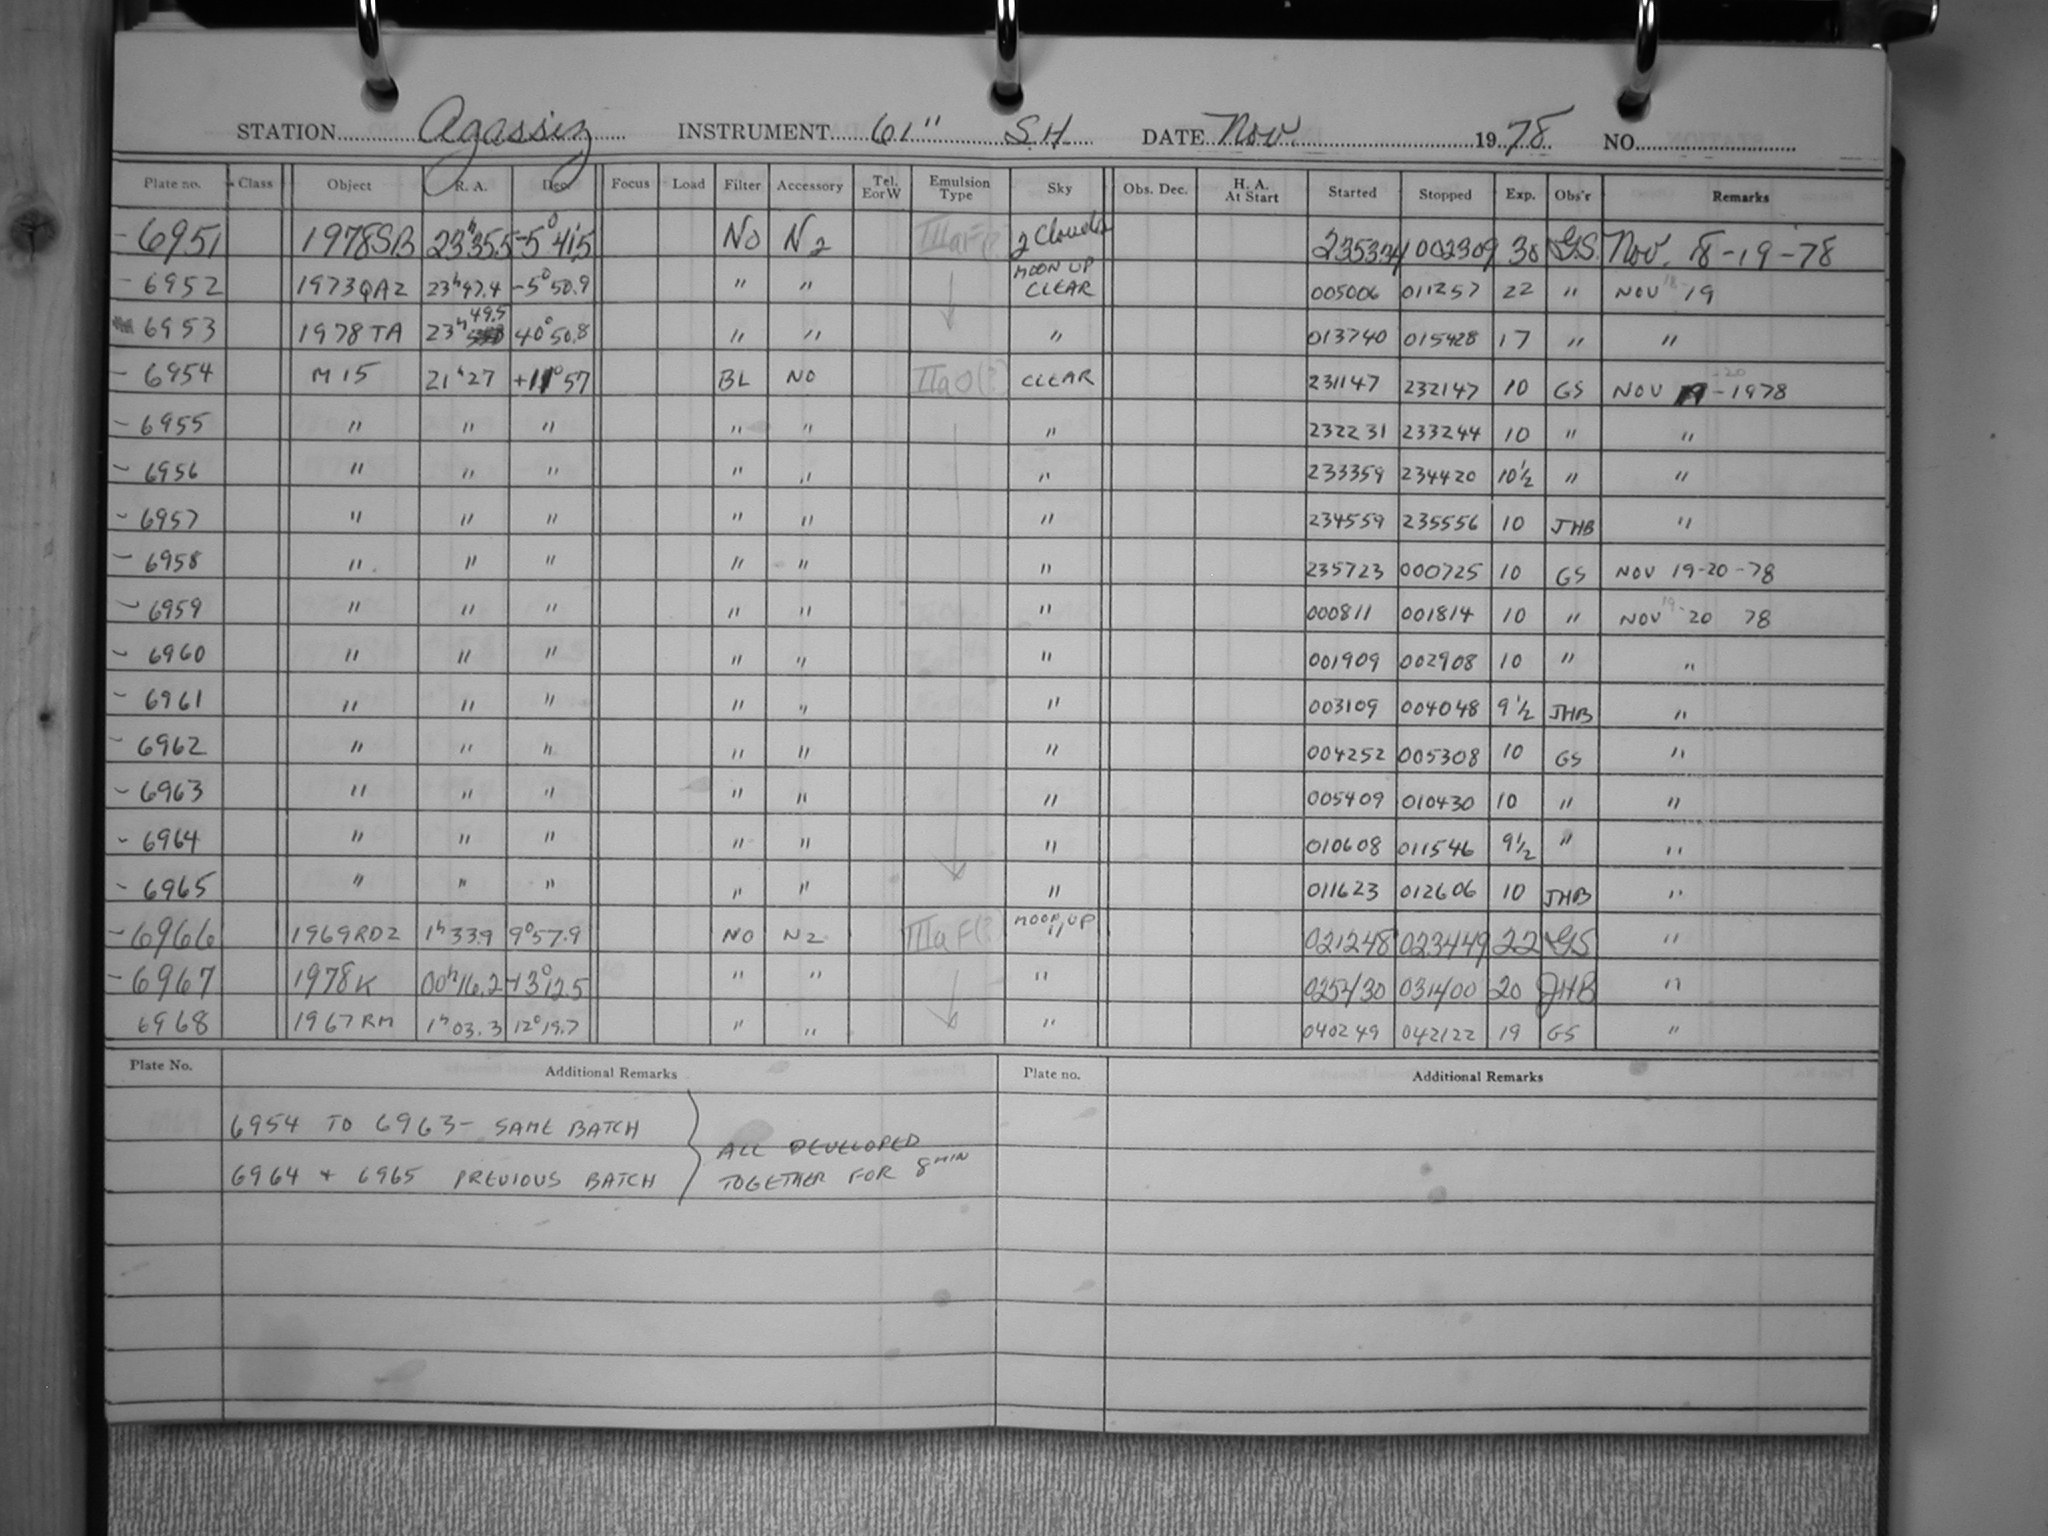 STATION Agassiz INSTRUMENT 61" S.H. DATE Nov. 1978 NO.
Plate no. Class Object R. A. Dec. Focus Load Filter Accessory Tel. E or W Emulsion Type Sky Obs. Dec. H. A. At Start Started Stopped Exp. Obs'r Remarks
- 6951 1978SB 23h35.5 -5°41.5 NO N2 IIIaF(?) 2 Clouds 235334 002309 30 GS Nov. 18-19-78
- 6952 1973QA2 23h47.4 -5°50.9 " " MOON UP CLEAR 005006 011257 22 " NOV 18- 19
6953 1978 TA 23h 49.5 40°50.8 " " " 013740 015428 17 " "
- 6954 M 15 21h27 +11°57 BL NO IIaO(?) CLEAR 231147 232147 10 GS NOV 19 -20 -1978
- 6955 " " " " " " 232231 233244 10 " "
- 6956 " " " " " " 233359 234420 10 1/2 " "
- 6957 " " " " " " 234559 235556 10 JHB "
- 6958 " " " " " " 235723 000725 10 GS NOV 19-20-78
- 6959 " " " " " " 000811 001814 10 " NOV 19- 20 78
- 6960 " " " " " " 001909 002908 10 " "
- 6961 " " " " " " 003109 004048 9 1/2 JHB "
- 6962 " " " " " " 004252 005308 10 GS "
- 6963 " " " " " " 005409 010430 10 " "
- 6964 " " " " " " 010608 011546 9 1/2 " "
- 6965 " " " " " " 011623 012606 10 JHB "
- 6966 1969RD2 1h33.9 9°57.9 NO N2 IIIaF(?) MOON UP " 021248 023449 22 GS "
- 6967 1978K 00h16.2 +3°12.5 " " " 025430 031400 20 JHB "
6968 1967RM 1h03.3 12°19.7 " " " 040249 042122 19 GS "
Plate No. Additional Remarks Plate no. Additional Remarks
6954 TO 6963- SAME BATCH
6964 + 6965 PREVIOUS BATCH
ALL DEVELOPED
TOGETHER FOR 8MIN